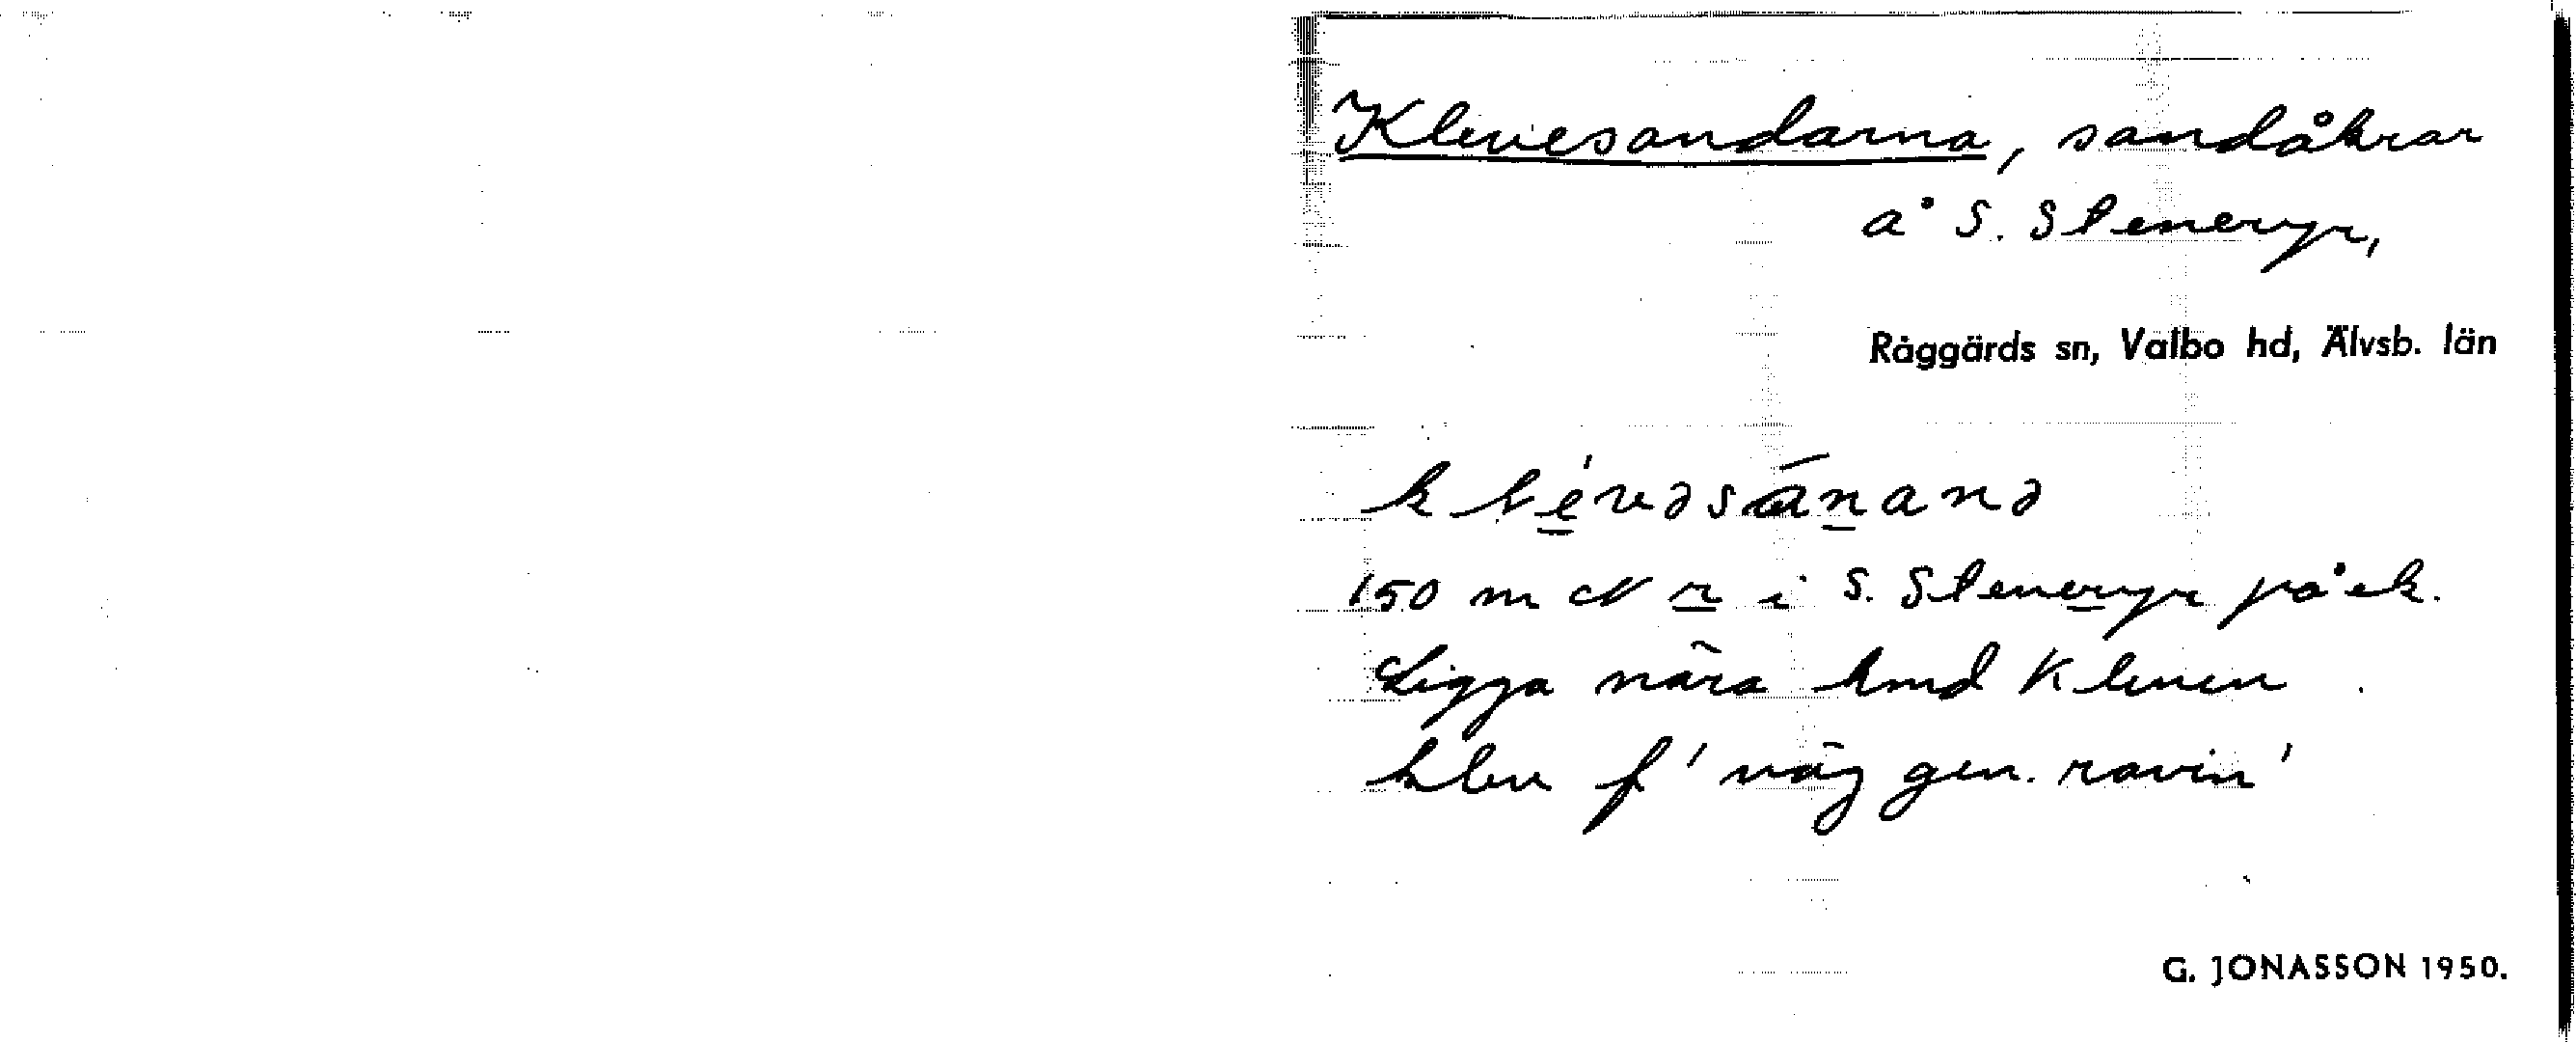 Klevesandarna, sandåkrar
å S. Steneryr,
Råggärds sn, Valbo hd, Älvsb. län
150 m N r i S. Steneryr på ek.
Ligga nära hmd Kleven
klev f 'väg gen. ravin'
G. JONASSON 1950.